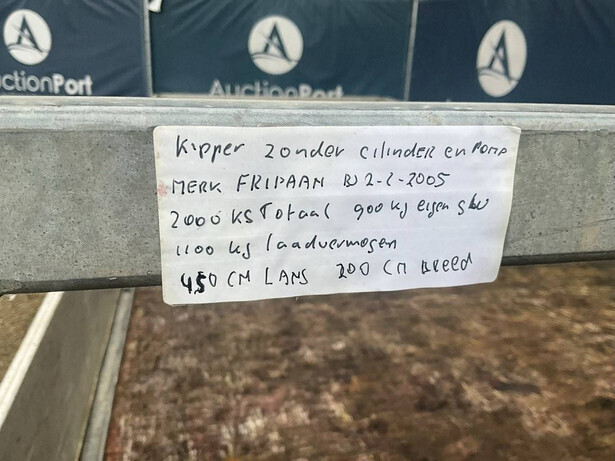 AuctionPort
AuctionPort
Kipper zonder cilinder en POMP
MERK FRIPAAN BJ 2-2-2005
2000 KG Totaal 900 kg eigen
1100 kg laadvermogen
450 CM LANG 200 CM BREED